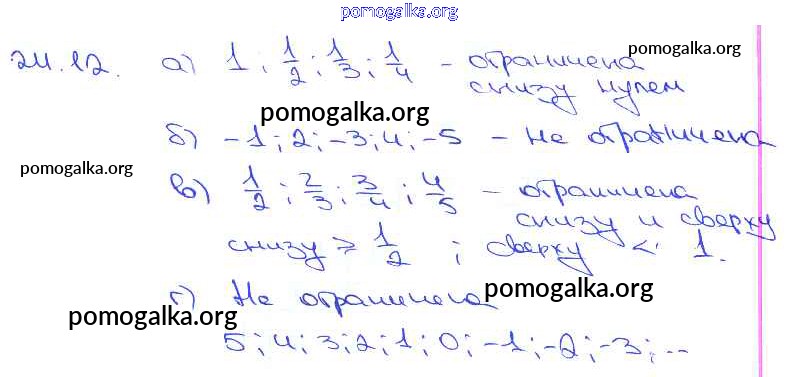 pomogalka.org
24.12. а) 1; 1/2; 1/3; 1/4 - ограничена pomogalka.org
снизу нулем
pomogalka.org
б) -1; 2; -3; 4; -5 - не ограничена
pomogalka.org
в) 1/2; 2/3; 3/4; 4/5 - ограничена
снизу и сверху
снизу ≥ 1/2; сверху < 1.
г) Не ограничена pomogalka.org
pomogalka.org
5; 4; 3; 2; 1; 0; -1; -2; -3; ...